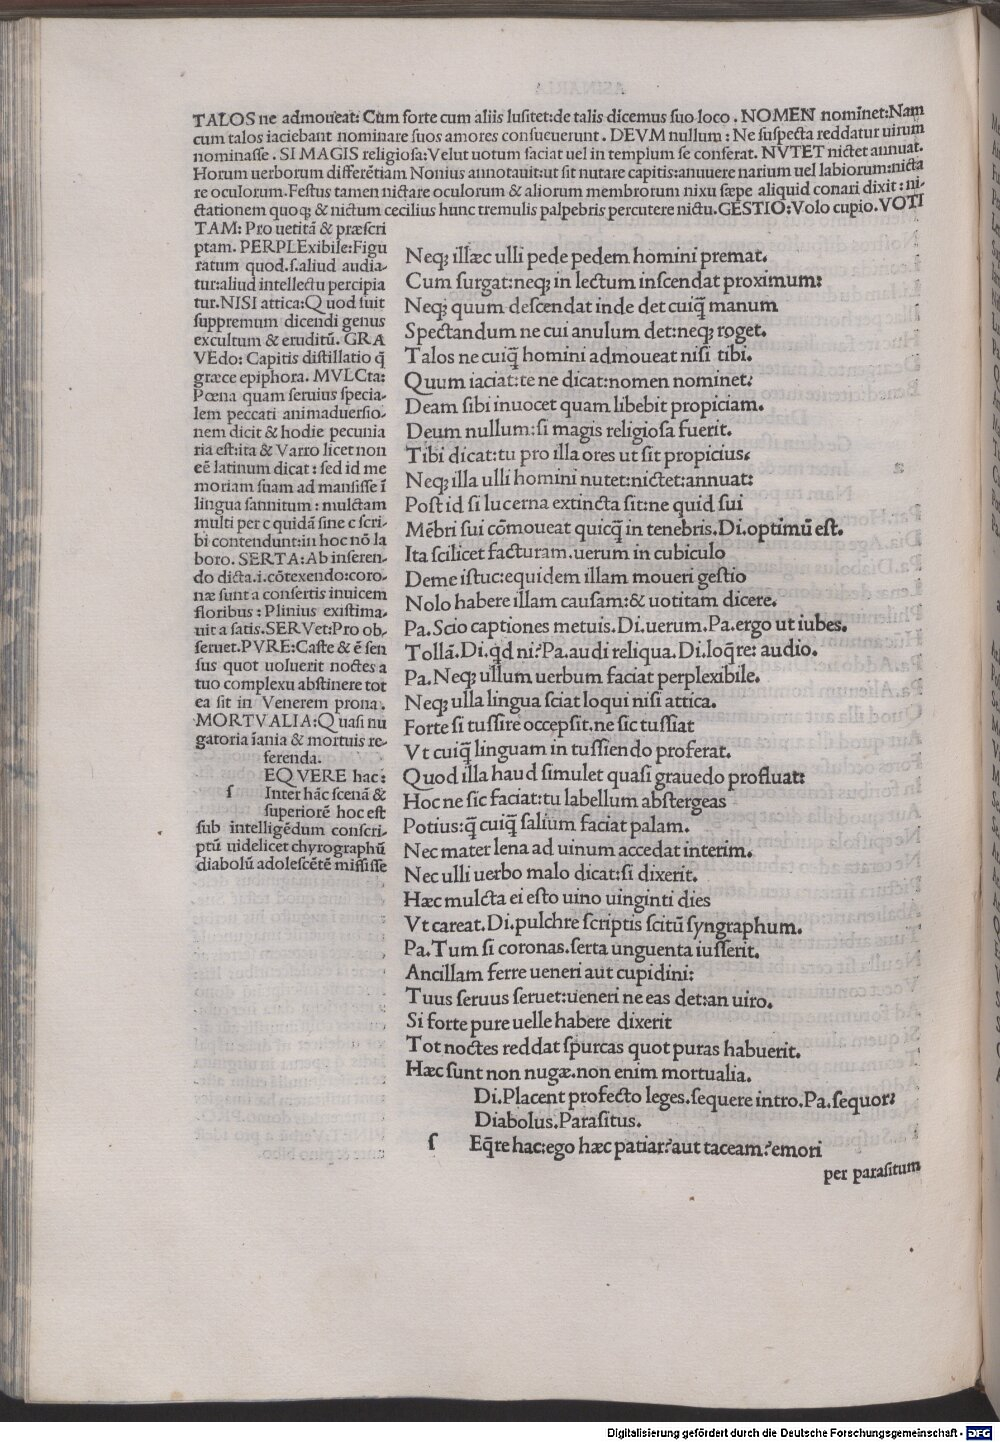 TALOS ne admoueat: Cum forte cum aliis lusitet:de talis dicemus suo loco . NOMEN nominet:Nam
cum talos iaciebant nominare suos amores consueuerunt . DEVM nullum : Ne suspecta reddatur uirum
nominasse . SI MAGIS religiosa:Velut uotum faciat uel in templum se conferat. NVTET nictet annuat.
Horum uerborum differẽtiam Nonius annotauit:ut sit nutare capitis:anuuere narium uel labiorum:nicta
re oculorum.Festus tamen nictare oculorum & aliorum membrorum nixu sæpe aliquid conari dixit : ni-
ctationem quoq; & nictum cecilius hunc tremulis palpebris percutere nictu.GESTIO:Volo cupio.VOTI
TAM: Pro uetitã & præscri
ptam. PERPLExibile:Figu
ratum quod.s.aliud audia-
tur:aliud intellectu percipia
tur.NISI attica:Quod fuit
suppremum dicendi genus
excultum & eruditũ. GRA
VEdo: Capitis distillatio q̃
græce epiphora. MVLCta:
Pœna quam seruius specia-
lem peccati animaduersio-
nem dicit & hodie pecunia
ria est:ita & Varro licet non
eẽ latinum dicat : sed id me
moriam suam ad mansisse ĩ
lingua sannitum : mulctam
multi per c quidã sine c scri-
bi contendunt:in hoc nõ la
boro. SERTA:Ab inseren-
do dicta.i.cõtexendo:coro-
næ sunt a consertis inuicem
floribus : Plinius existima-
uit a satis.SERVet:Pro ob-
seruet.PVRE:Caste & ẽ sen
sus quot uoluerit noctes a
tuo complexu abstinere tot
ea sit in Venerem prona.
MORTVALIA:Quasi nu
gatoria ĩania & mortuis re-
ferenda.
EQVERE hac:
s Inter hãc scenã &
superiorẽ hoc est
sub intelligẽdum conscri-
ptũ uidelicet chyrographũ
diabolũ adolescẽtẽ misisse
Neq; illæc ulli pede pedem homini premat.
Cum surgat:neq; in lectum inscendat proximum:
Neq; quum descendat inde det cuiq̃ manum
Spectandum ne cui anulum det:neq; roget.
Talos ne cuiq̃ homini admoueat nisi tibi.
Quum iaciat:te ne dicat:nomen nominet:
Deam sibi inuocet quam libebit propiciam.
Deum nullum:si magis religiosa fuerit.
Tibi dicat:tu pro illa ores ut sit propicius.
Neq; illa ulli homini nutet:nictet:annuat:
Post id si lucerna extincta sit:ne quid sui
Mẽbri sui cõmoueat quicq̃ in tenebris.Di.optimũ est.
Ita scilicet facturam.uerum in cubiculo
Deme istuc:equidem illam moueri gestio
Nolo habere illam causam:& uotitam dicere.
Pa.Scio captiones metuis.Di.uerum.Pa.ergo ut iubes.
Tollã.Di.qd ni?Pa.audi reliqua.Di.loq̃re: audio.
Pa.Neq; ullum uerbum faciat perplexibile.
Neq; ulla lingua sciat loqui nisi attica.
Forte si tussire occepsit.ne sic tussiat
Vt cuiq̃ linguam in tussiendo proferat.
Quod illa haud simulet quasi grauedo profluat:
Hoc ne sic faciat:tu labellum abstergeas
Potius:q̃ cuiq̃ salium faciat palam.
Nec mater lena ad uinum accedat interim.
Nec ulli uerbo malo dicat:si dixerit.
Hæc mulcta ei esto uino uinginti dies
Vt careat.Di.pulchre scriptis scitũ syngraphum.
Pa.Tum si coronas.serta unguenta iusserit.
Ancillam ferre ueneri aut cupidini:
Tuus seruus seruet:ueneri ne eas det:an uiro.
Si forte pure uelle habere dixerit
Tot noctes reddat spurcas quot puras habuerit.
Hæc sunt non nugæ.non enim mortualia.
Di.Placent profecto leges.sequere intro.Pa.sequor:
Diabolus.Parasitus.
s Eq̃re hac:ego hæc patiar?aut taceam?emori
per parasitum
Digitalisierung gefördert durch die Deutsche Forschungsgemeinschaft - DFG